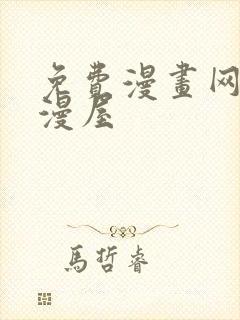 免費漫畫网
漫屋
馬哲睿